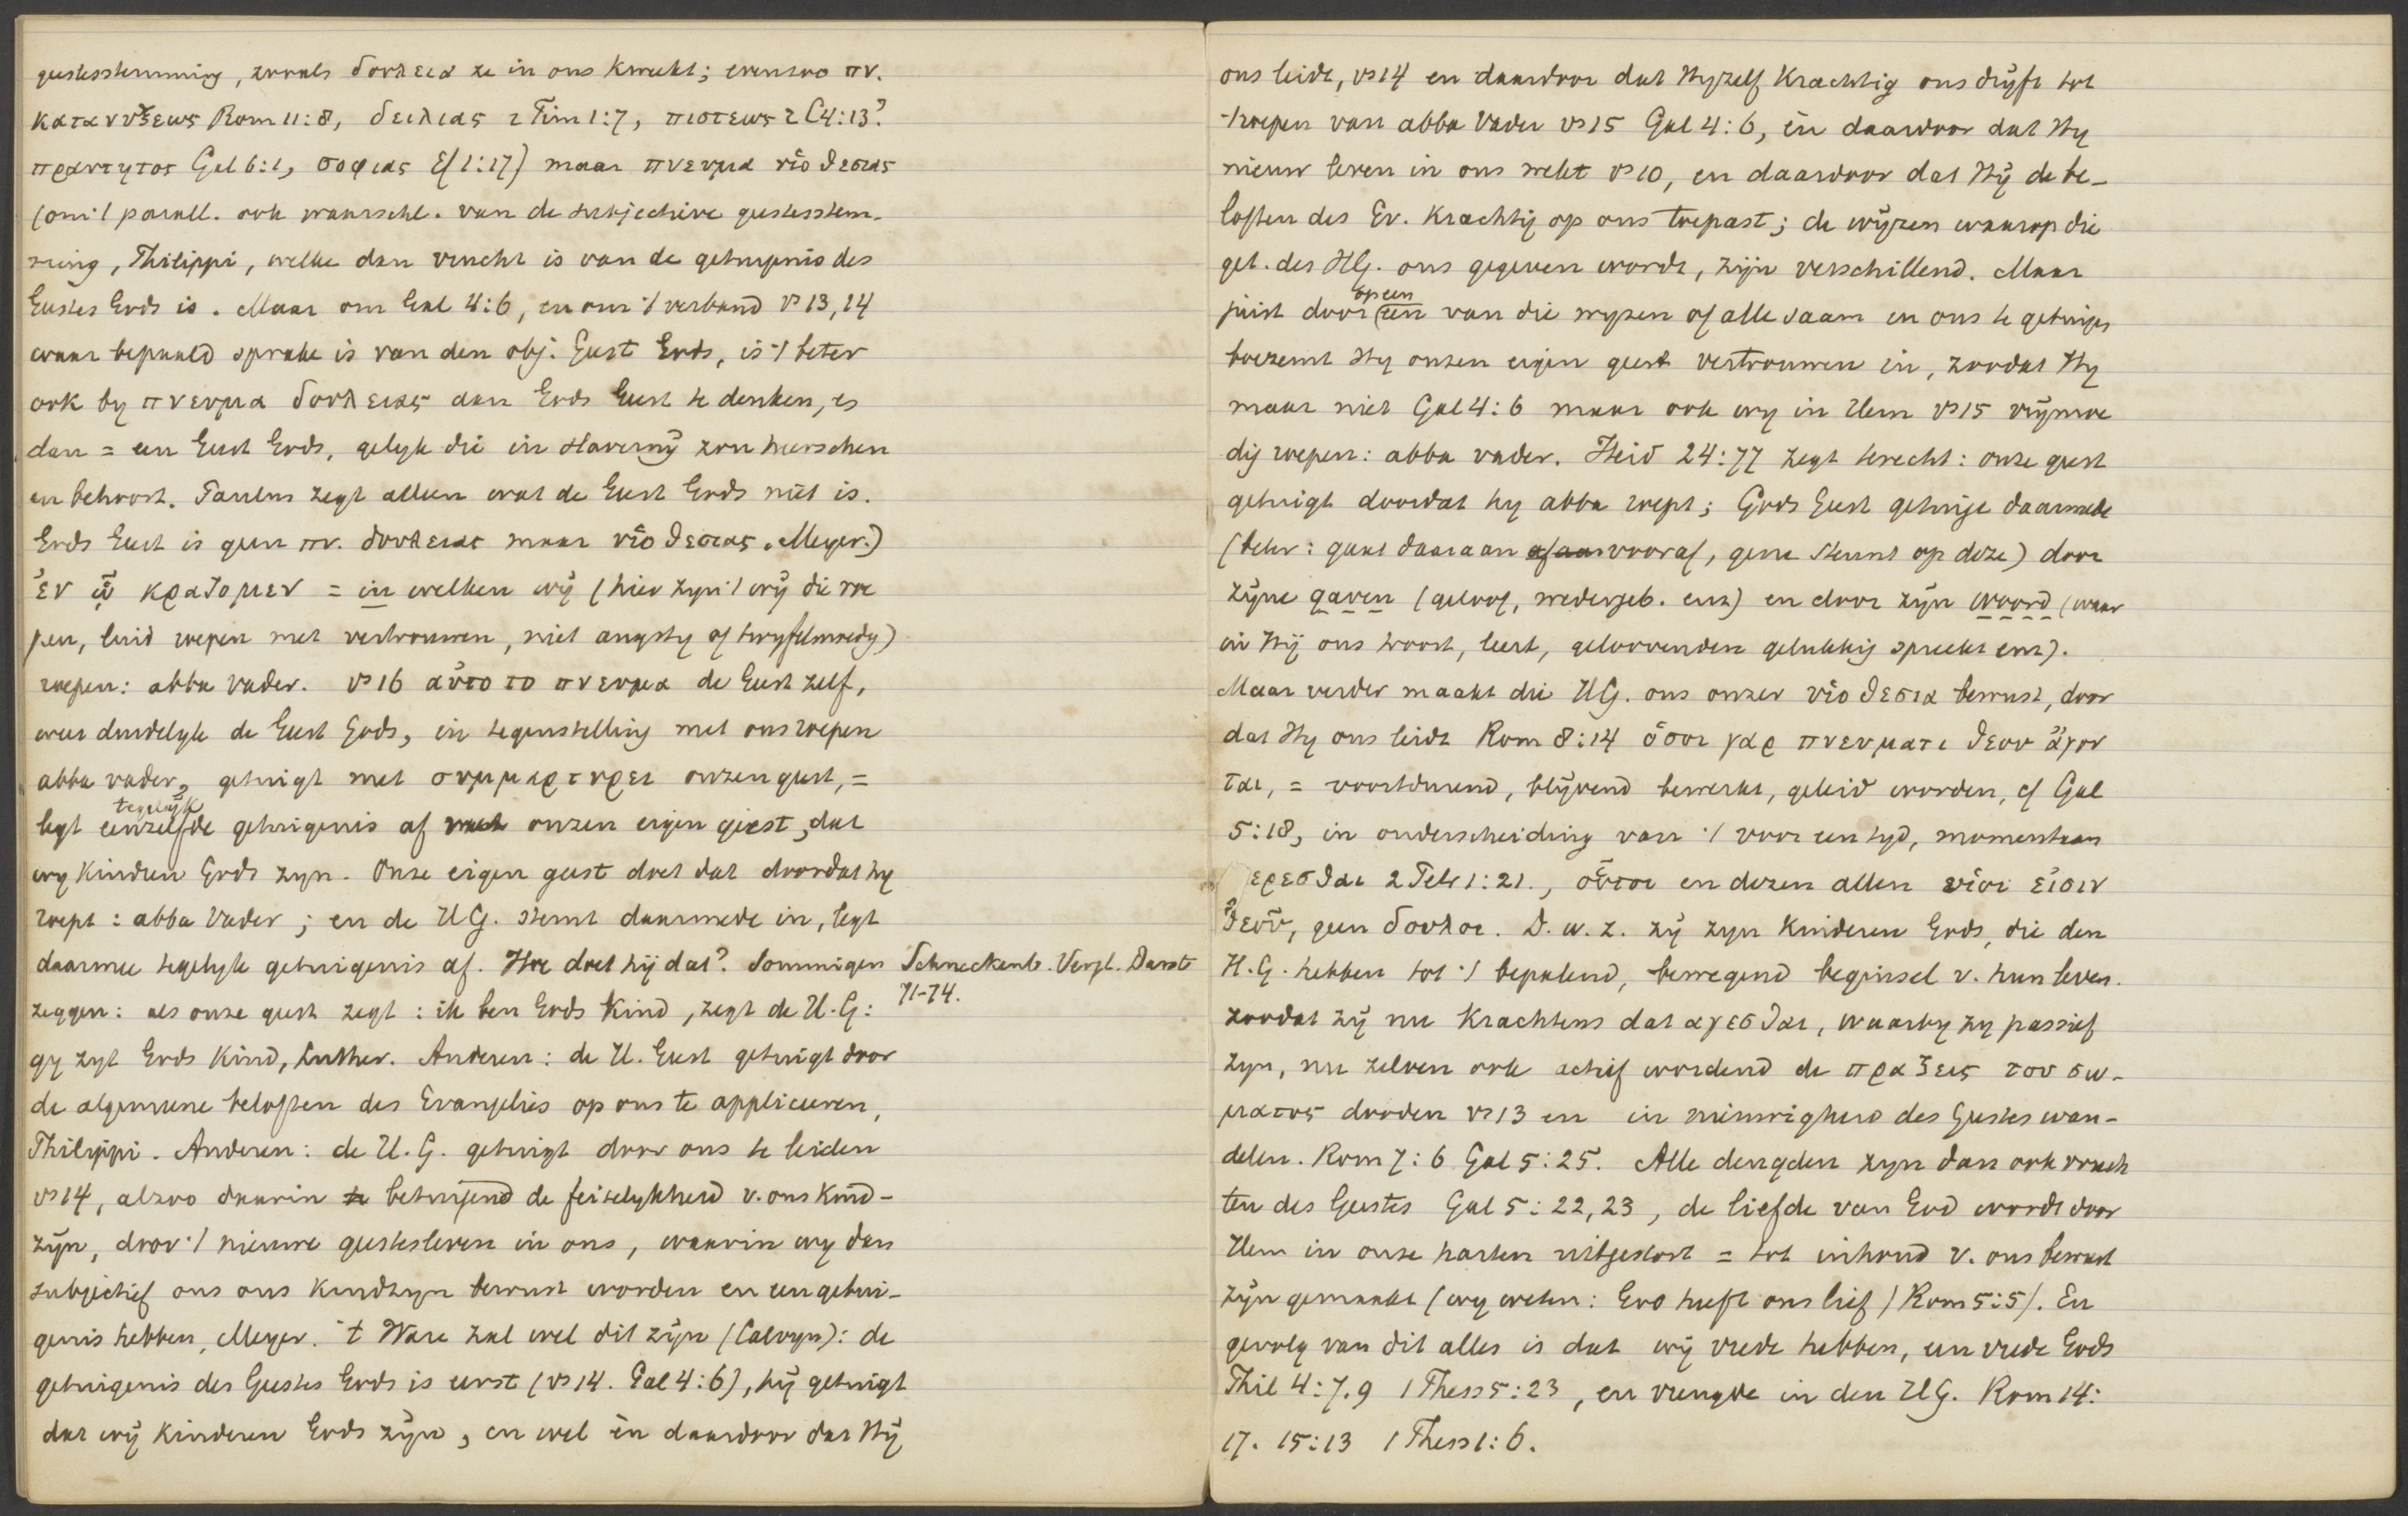 geestesstemming, zooals δουλεια ze in ons kweekt; evenzoo πν.
κατανυξεως Rom 11:8, δειλιας 2 Tim 1:7, πιστεως 2 C 4:13?
πραντητος Gal 6:1, σοφιας Ef 1:17) maar πνευμα υἱοθεσιας
(om 't parall. ook waarschl. van de subjectieve geestesstem-
ming, Philippi, welke dan vrucht is van de getuigenis des
Geestes Gods is. Maar om Gal 4:6, en om 't verband vs 13, 14
waar bepaald sprake is van den obj. Geest Gods, is 't beter
ook by πνευμα δουλειας aan Gods Geest te denken, es
dan = een Geest Gods, gelyk die in slaverny zou heerschen
en behoort. Paulus zegt alleen wat de Geest Gods niet is.
Gods Geest is geen πν. δουλειας maar υἱοθεσιας. Meyer.)
ἐν ᾧ κραζομεν = in welken wÿ (hier zyn 't wÿ die roe
pen, luid roepen met vertrouwen, niet angstig of twyfelmoedig)
roepen: abba vader. vs 16 αὐτο το πνευμα de Geest zelf,
weer duidelyk de Geest Gods, in tegenstelling met ons roepen
abba vader, getuigt met συμμαρτυρει onzen geest, =
tegelÿk
legt eenzelfde getuigenis af met onzen eigen geest, dat
wy kindren Gods zyn. Onze eigen geest doet dat doordat hy
roept: abba Vader; en de H.G. stemt daarmede in, legt
daarmee tegelyk getuigenis af. Hoe doet hij dat? Sommigen
Schneckenb. Vergl. Darst
71-74.
zeggen: als onze geest zegt: ik ben Gods kind, zegt de H.G:
gy zyt Gods kind, Luther. Anderen: de H. Geest getuigt door
de algemeene beloften des Evangelies op ons te appliceeren,
Philippi. Anderen: de H.G. getuigt door ons te leiden
vs 14, alzoo daarin te betuigend de feitelykheid v. ons kind-
zÿn, door 't nieuwe geestesleven in ons, waarin wy dan
subjectief ons ons kindzyn bewust worden en een getui-
genis hebben, Meyer. 't Ware zal wel dit zÿn (Calvyn): de
getuigenis des Geestes Gods is eerst (vs 14. Gal 4:6), hÿ getuigt
dat wÿ kinderen Gods zÿn, en wel èn daardoor dat Hÿ
ons leidt, vs 14 en daardoor dat Hyzelf krachtig ons drÿft tot
't roepen van abba Vader vs 15 Gal 4:6, èn daardoor dat Hy
nieuw leven in ons wekt vs 10, en daardoor dat Hÿ de be-
loften des Ev. krachtig op ons toepast; de wÿzen waarop die
get. des HG. ons gegeven wordt, zÿn verschillend. Maar
op een
juist door (een van die wyzen of alle saam en ons te getuigen
boezemt Hy onzen eigen geest vertrouwen in, zoodat Hy
maar niet Gal 4:6 maar ook wy in Hem vs 15 vrÿmoe
dig roepen: abba vader. Heid 24:77 zegt terecht: onze geest
getuigt doordat hy abba roept; Gods Geest getuige daarmede
(beter: gaat daaraan af aan vooraf, gene steunt op deze) door
zÿne gaven (geloof, wedergeb. enz) en door zÿn woord (waar
in Hÿ ons troost, leert, geloovenden gelukkig spreekt enz).
Maar verder maakt die HG. ons onzer υἱοθεσια bewust, door
dat Hy ons leidt Rom 8:14 ὁσοι γαρ πνευματι θεου ἀγον
ται, = voortdurend, blÿvend bewerkt, geleid worden, cf Gal
5:18, in onderscheiding van 't voor een tyd, momentaan
φερεσθαι 2 Petr 1:21., οὑτοι en dezen allen υἱοι εἰσιν
θεου, geen δουλοι. D.w.z. zÿ zyn kinderen Gods, die den
H.G. hebben tot 't bepalend, bewegend beginsel v. hun leven.
zoodat zÿ nu krachtens dat αγεσθαι, waarby zy passief
zyn, nu zelven ook actief wordend de πραξεις του σω-
ματος dooden vs 13 en in nieuwigheid des Geestes wan-
delen. Rom 7:6 Gal 5:25. Alle deugden zyn dan ook vruch
ten des Geestes Gal 5:22, 23, de liefde van God wordt door
Hem in onze harten uitgestort = tot inhoud v. ons bewust
zÿn gemaakt (wy weten: God heeft ons lief) Rom 5:5). En
gevolg van dit alles is dat wÿ vrede hebben, een vrede Gods
Phil 4:7.9 1 Thess 5:23, en vreugde in den HG. Rom 14:
17. 15:13 1 Thess 1:6.